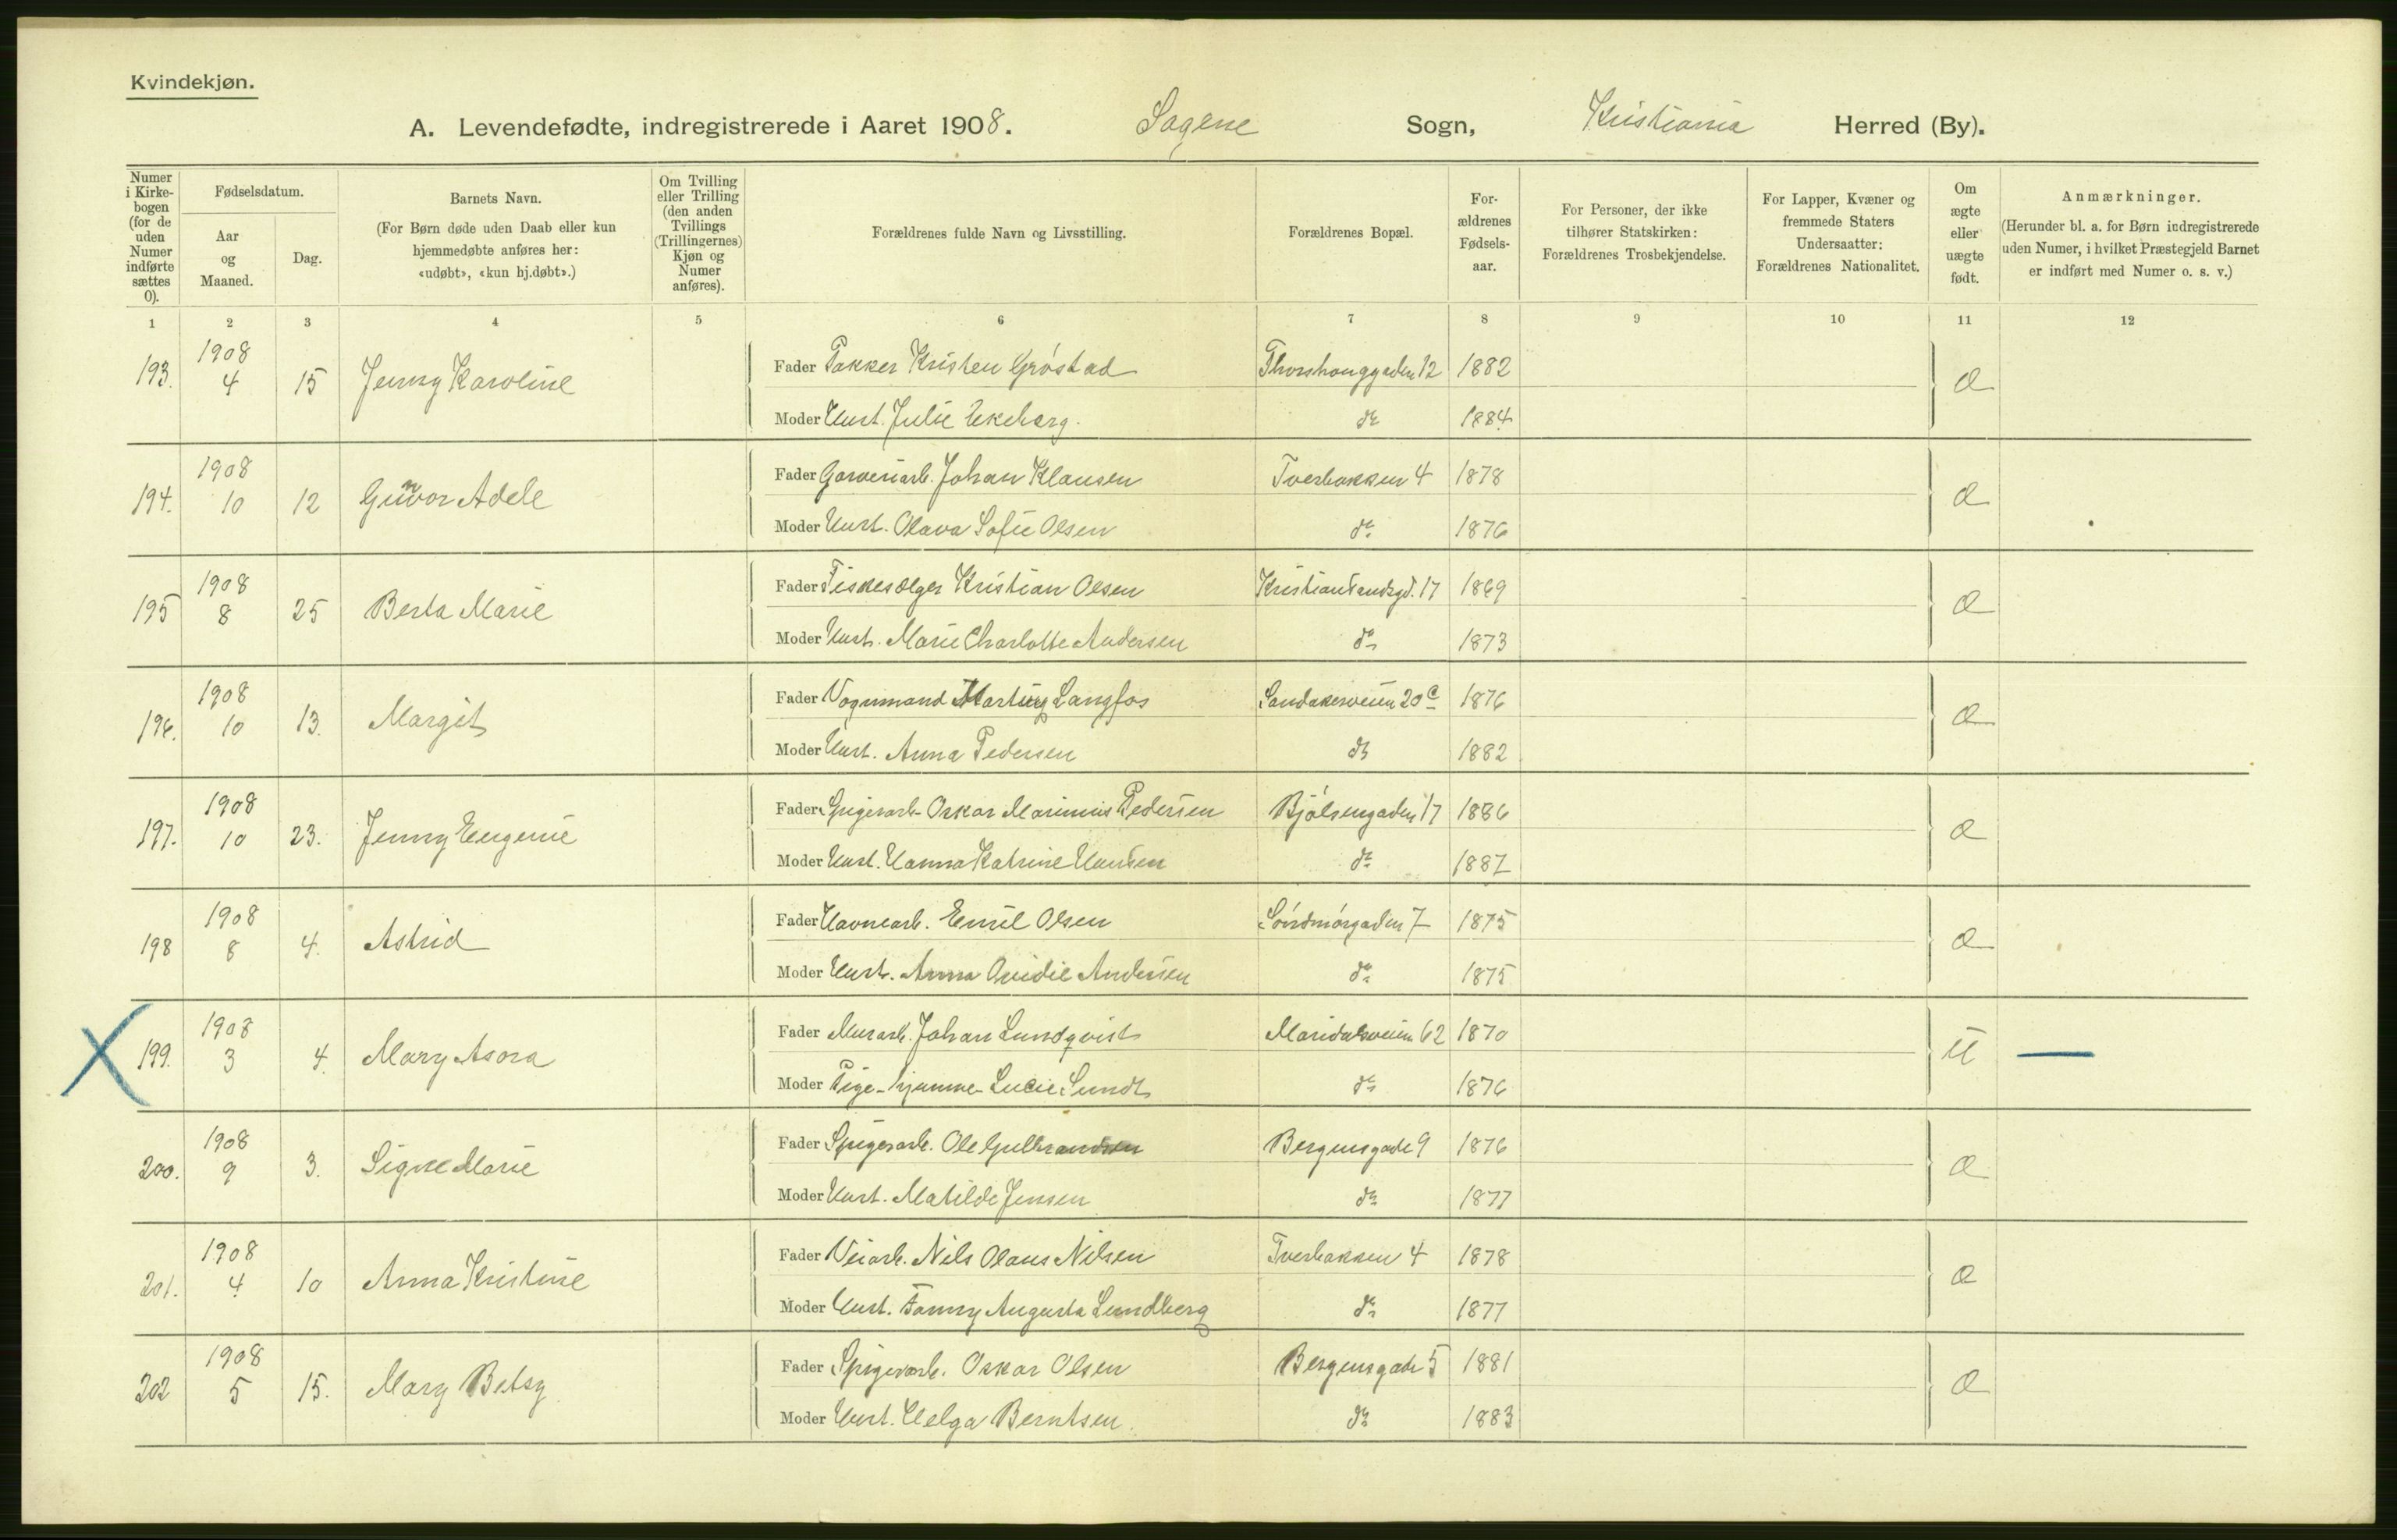 Kvindekjøn.
A. Levendefødte, indregistrerede i Aaret 1908. Sagene Sogn, Kristiania Herred (By).
Numer i Kirkebogen (for de uden Numer indførte sættes 0).
Fødselsdatum.
Aar og Maaned.
Dag.
Barnets Navn.
(For Børn døde uden Daab eller kun hjemmedøbte anføres her: «udøbt», «kun hj.døbt».)
Om Tvilling eller Trilling (den anden Tvillings (Trillingernes) Kjøn og Numer anføres).
Forældrenes fulde Navn og Livsstilling.
Forældrenes Bopæl.
Forældrenes Fødselsaar.
For Personer, der ikke tilhører Statskirken: Forældrenes Trosbekjendelse.
For Lapper, Kvæner og fremmede Staters Undersaatter: Forældrenes Nationalitet.
Om ægte eller uægte født.
Anmærkninger.
(Herunder bl. a. for Børn indregistrerede uden Numer, i hvilket Præstegjeld Barnet er indført med Numer o. s. v.)
1 2 3 4 5 6 7 8 9 10 11 12
193. 1908 4 15 Jenny Karoline
Fader Pakker Kristen Grøstad Thorshauggaden 12 1882 Æ
Moder Hust. Julie Ekeberg. do 1884
194. 1908 10 12 Gunvor Adele
Fader Garveriarb. Johan Klausen Tverbakken 4 1878 Æ
Moder Hust. Olava Sofie Olsen do 1876
195 1908 8 25 Berta Marie
Fader Fiskesælger Kristian Olsen Kristiansandsgd. 17 1869 Æ
Moder Hust. Marie Charlotte Andersen do 1873
196. 1908 10 13. Margit
Fader Vognmand Langfos Sandakerveien 20 c 1876 Æ
Moder Hust. Anna Pedersen do 1882
197. 1908 10 23. Jenny Eugenie
Fader Spigerarb. Oskar Marinius Pedersen Bjølsengaden 17 1886 Æ
Moder Hust. Hanna Katrine Hansen do 1887
198 1908 8 4. Astrid
Fader Havnearb. Emil Olsen Søndmørgaden 7 1875 Æ
Moder Hust. Anna Ovidie Andersen do 1875
199. 1908 3 4. Mary Asora
Fader Murarb. Johan Lundqvist Maridalsveien 62 1870 U —
Moder Pige - hjemme - Lucie Sundt do 1876
200. 1908 9 3. Signe Marie
Fader Spigerarb. Ole Gulbrandsen Bergensgade 9 1876 Æ
Moder Hust. Matilde Jensen do 1877
201. 1908 4 10 Anna Kristine
Fader Veiarb. Nils Olaus Nilsen Tverbakken 4 1878 Æ
Moder Hust. Fanny Augusta Lundberg do 1877
202 1908 5 15. Mary Betsy
Fader Spigerarb. Oskar Olsen Bergensgade 5 1881 Æ
Moder Hust. Helga Berntsen. do 1883